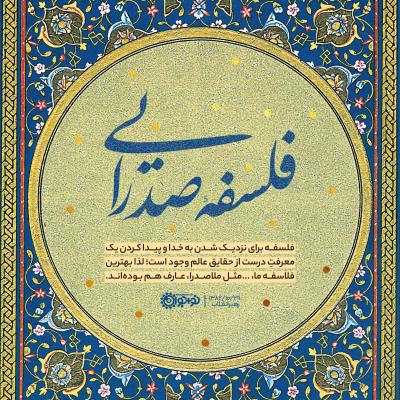 فلسفهٔ صدرایی
فلسفه برای نزدیک شدن به خدا و پیدا کردن یک
معرفتِ درست از حقایق عالم وجود است؛ لذا بهترین
فلاسفه ما، ...مثل ملاصدرا، عارف هم بوده‌اند.